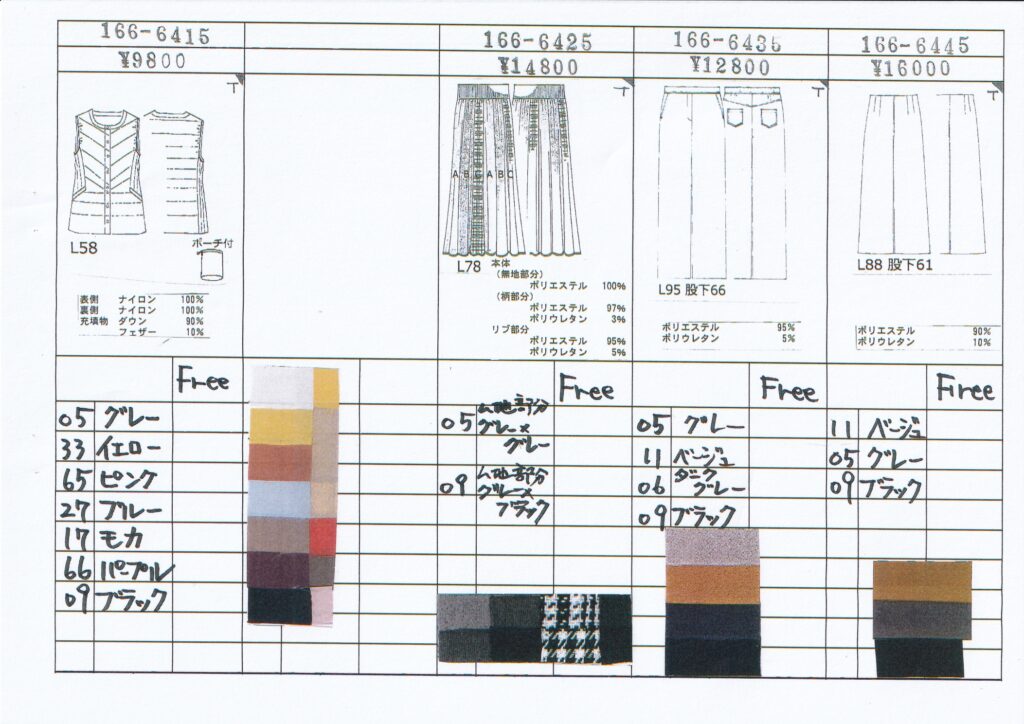 166-6415
¥9800
T
L58
ポーチ付
表側 ナイロン 100%
裏側 ナイロン 100%
充填物 ダウン 90%
フェザー 10%
Free
05 グレー
33 イエロー
65 ピンク
27 ブルー
17 モカ
66 パープル
09 ブラック
166-6425
¥14800
T
A B C A B C
L78 本体
(無地部分)
ポリエステル 100%
(柄部分)
ポリエステル 97%
ポリウレタン 3%
リブ部分
ポリエステル 95%
ポリウレタン 5%
Free
05 ム地部分
グレー×
グレー
09 ム地部分
グレー×
ブラック
166-6435
¥12800
T
L95 股下66
ポリエステル 95%
ポリウレタン 5%
Free
05 グレー
11 ベージュ
06 ダーク
グレー
09 ブラック
166-6445
¥16000
T
L88 股下61
ポリエステル 90%
ポリウレタン 10%
Free
11 ベージュ
05 グレー
09 ブラック